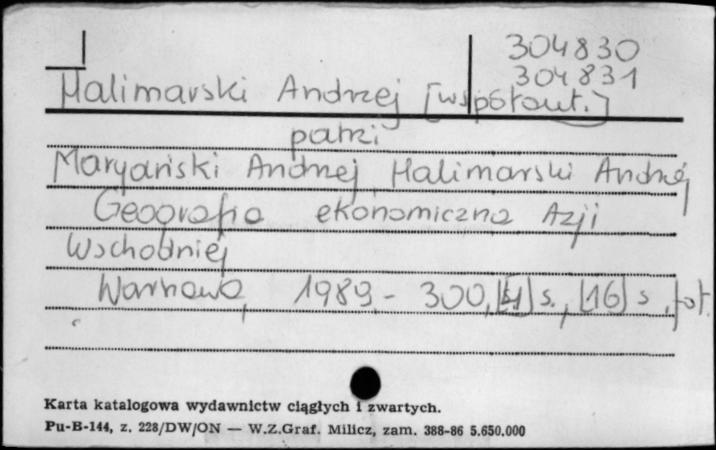 304830
304831
Halimarski Andrzej [współaut.]
patrz
Maryański Andrzej, Halimarski Andrzej
Geografia ekonomiczna Azji
Wschodniej
Warszawa, 1989. - 300, [4] s., [16] s. fot.
Karta katalogowa wydawnictw ciągłych i zwartych.
Pu-B-144, z. 228/DW/ON — W.Z.Graf. Milicz, zam. 388-86 5.650.000